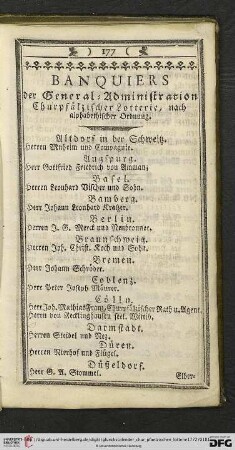 ) 177 (
BANQUIERS
der General-Administration
Churpfälzischer Lotterie, nach
alphabethischer Ordnung.
Altdorf in der Schweitz.
Herren Muheim und Compagnie.
Augspurg.
Herr Gottfried Friedrich von Amman.
Basel.
Herren Leonhard Vischer und Sohn.
Bamberg.
Herr Johann Leonhard Kreitzer.
Berlin.
Herren J. G. Merck und Neubronner.
Braunschweig.
Herren Joh. Christ. Koch und Sohn.
Bremen.
Herr Johann Schröder.
Coblenz.
Herr Peter Joseph Maurer.
Cölln.
Herr Joh. Mathias Franz, Churpfälzischer Rath u. Agent.
Herren von Recklinghausen seel. Wittib.
Darmstadt.
Herren Steidel und Netz.
Düren.
Herren Nierhof und Flügel.
Düsseldorf.
Herr G. A. Stommel.
Elber-
DFG